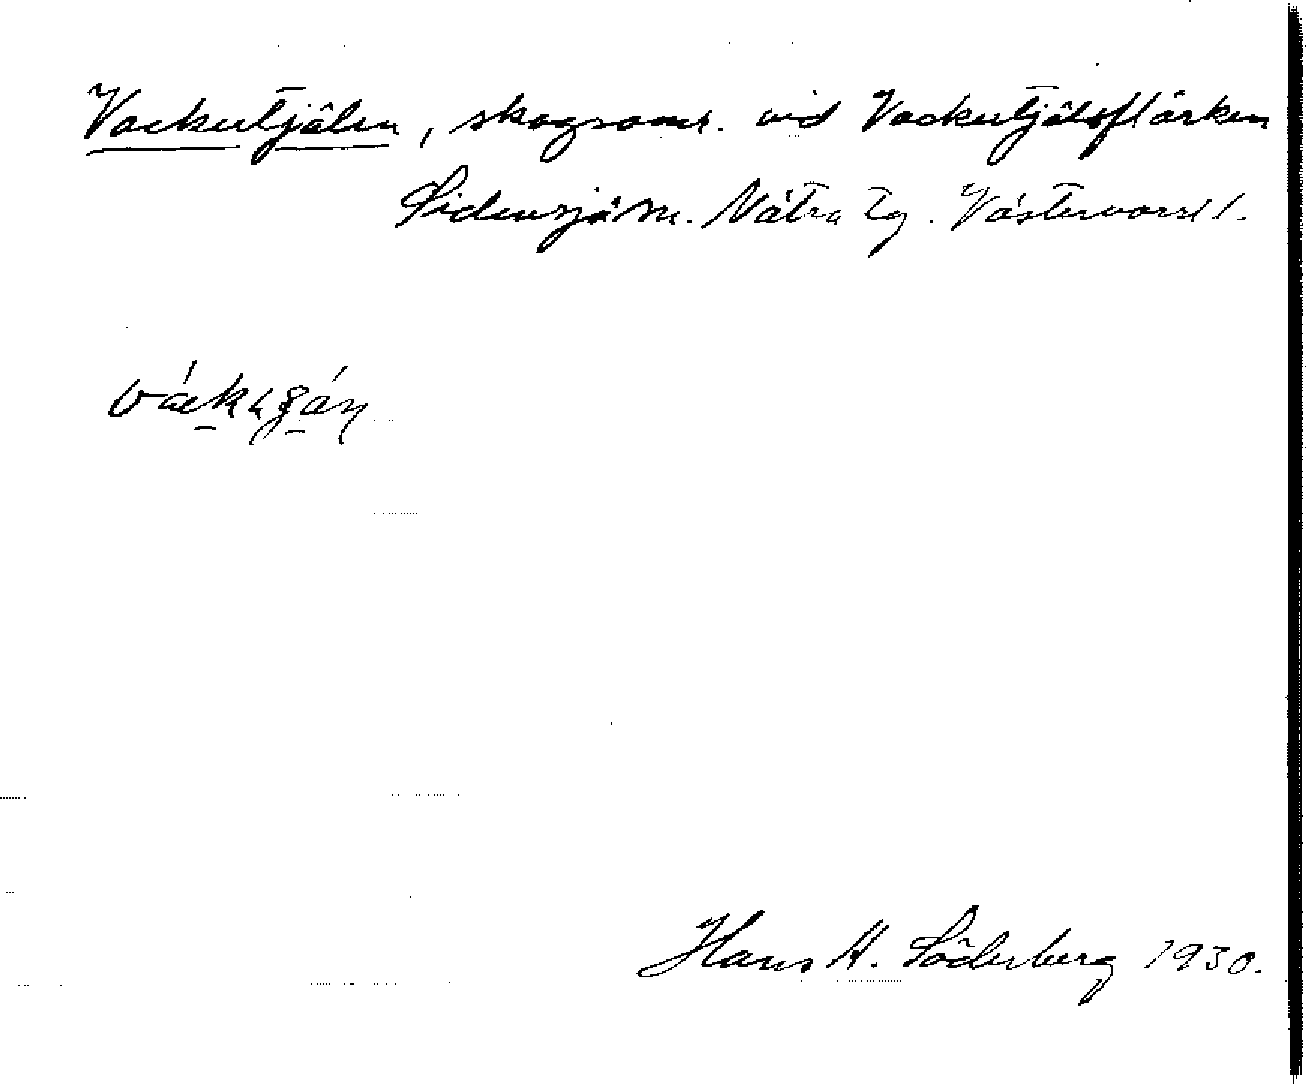 Vackertjälen, skogsomr. vid Vackertjälsflärken
Sidensjö sn. Nätra tg. Västernorrl l.
Hans H. Söderberg 1930.